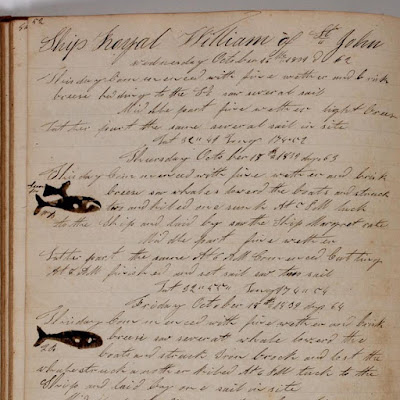 52
Ship Royal William of St John
Wednesday October 1839 62
This day Commenced with fine wether and brisk
breeze heding to the SE saw several sail
Middle part fine wether light breeze
Latter part the same several sail in site
Lat 32"49 Long 174"52
Thursday October 18th 1839 days 63
This day Commenced with fine wether and brisk
breeze saw whales lowerd the boats and struck
two and kilbed one sunk At 5 PM tuck
to the Ship and laid by saw the Ship Margret rate
Middle part fine wether
Latter part the same At 6 AM Commenced Cutting
At 8 AM finished and set sail two sail
Lat 32" Long 174"54
Friday October 18th 1839 days 64
This day Commenced with fine wether and brisk
breeze saw several whale lowerd the
boats and struck Iron broock and lost the
whale struck another kilbed At 5 PM tuck to the
Ship and laid by one sail in site